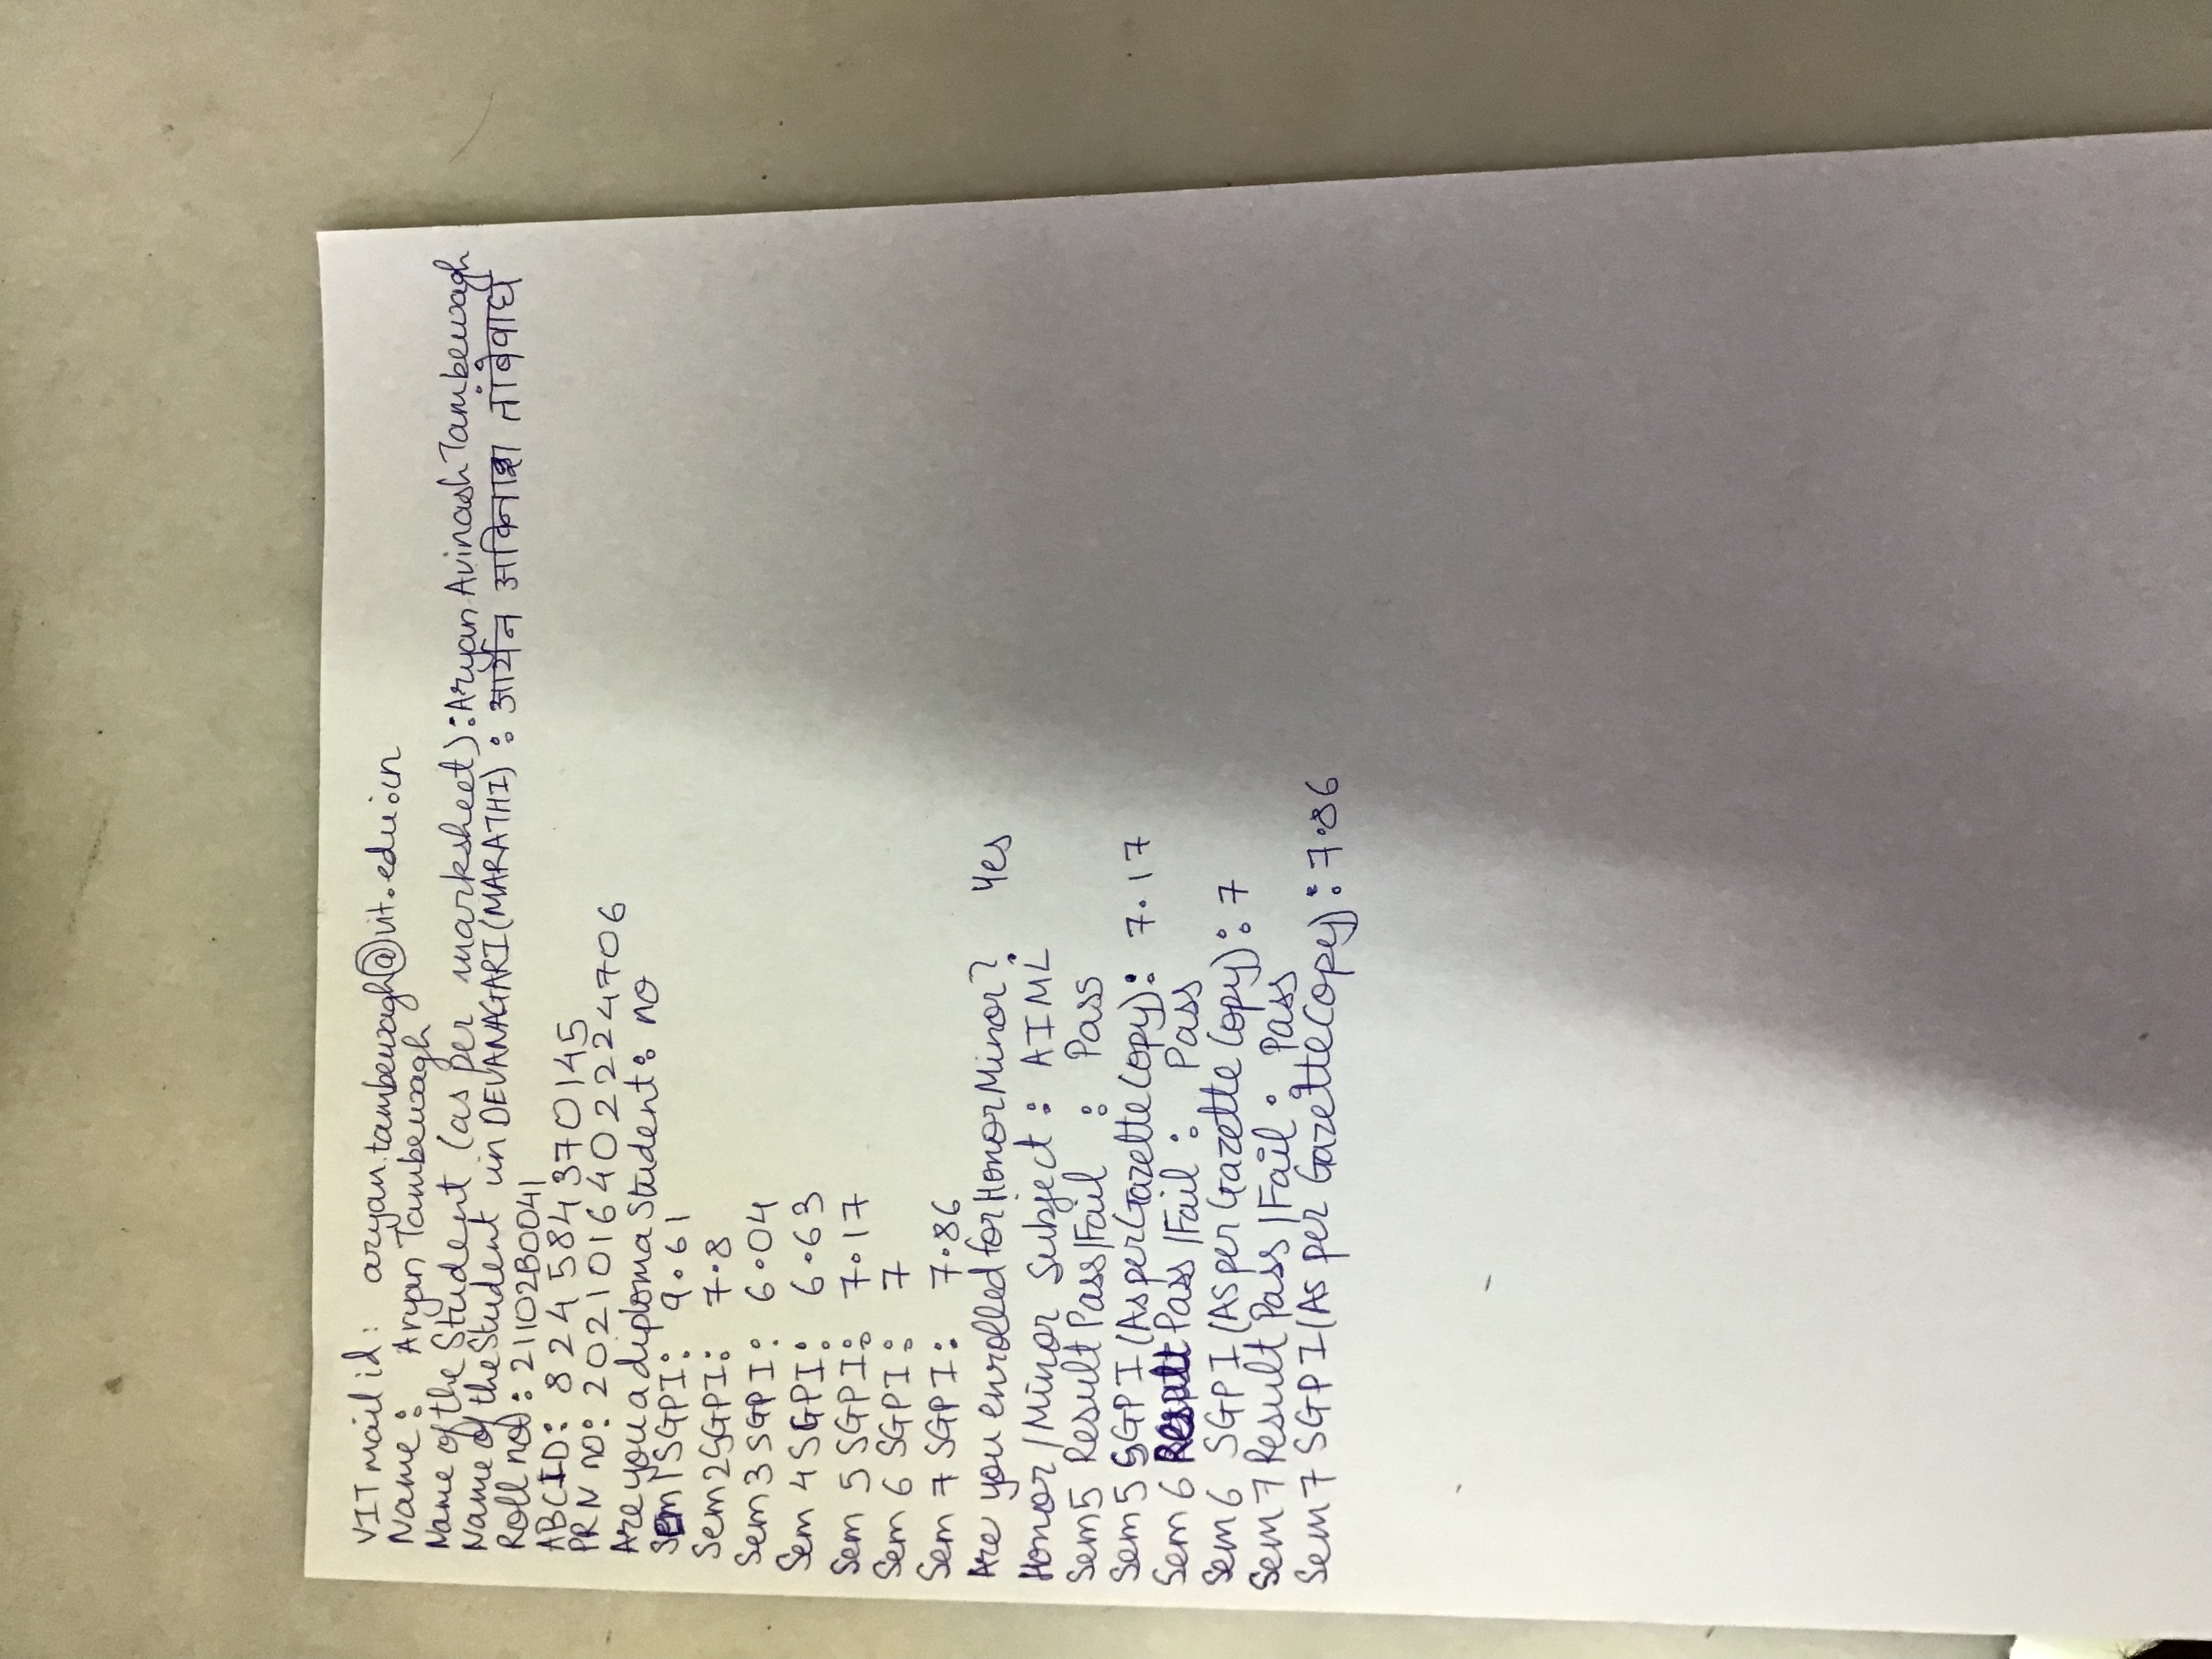 VIT mail id: aryan.tambewagh@vit.edu.in
Name: Aryan Tambewagh
Name of the Student (as per marksheet): Aryan Avinash Tambewagh
Name of the Student in DEVANAGARI(MARATHI): आर्यन अविनाश तांबेवाघ
Roll no: 21102B0041
ABC ID: 824584370145
PRN no: 2021016402224706
Are you a diploma Student: no
Sem 1 SGPI: 9.61
Sem 2 SGPI: 7.8
Sem 3 SGPI: 6.04
Sem 4 SGPI: 6.63
Sem 5 SGPI: 7.17
Sem 6 SGPI: 7
Sem 7 SGPI: 7.86
Are you enrolled for Honor Minor? Yes
Honor/Minor Subject: AIML
Sem 5 Result Pass/Fail: Pass
Sem 5 SGPI (As per Gazette Copy): 7.17
Sem 6 Result Pass/Fail: Pass
Sem 6 SGPI (As per Gazette Copy): 7
Sem 7 Result Pass/Fail: Pass
Sem 7 SGPI (As per Gazette Copy): 7.86